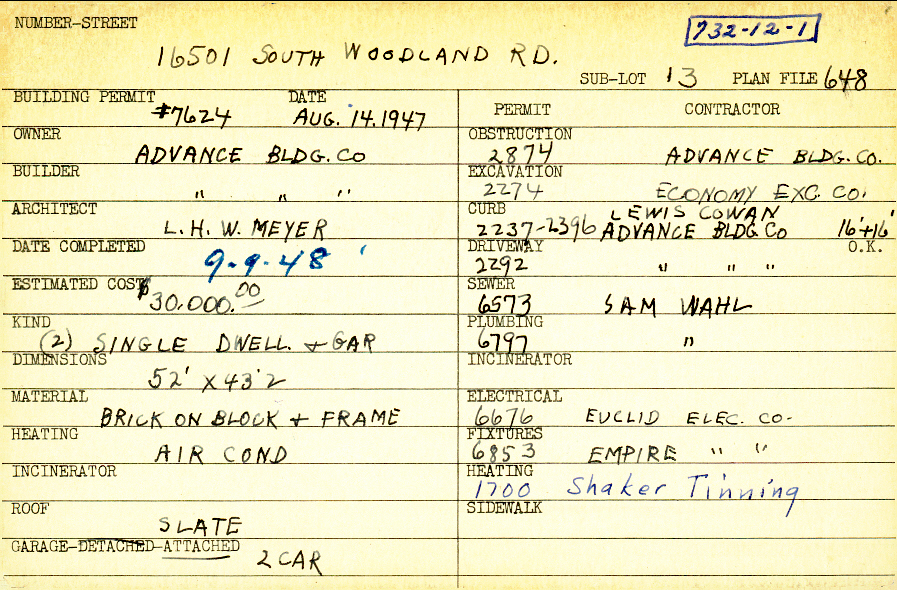 NUMBER-STREET
732-12-1
16501 SOUTH WOODLAND RD.
SUB-LOT 13 PLAN FILE 648
BUILDING PERMIT DATE
#7624 AUG. 14.1947
OWNER
ADVANCE BLDG. CO
BUILDER
" " "
ARCHITECT
L. H. W. MEYER
DATE COMPLETED
9-9-48
ESTIMATED COST
$30,000.00
KIND
(2) SINGLE DWELL. + GAR
DIMENSIONS
52' X 43'2
MATERIAL
BRICK ON BLOCK + FRAME
HEATING
AIR COND
INCINERATOR
ROOF
SLATE
GARAGE-DETACHED-ATTACHED
2 CAR
PERMIT CONTRACTOR
OBSTRUCTION
2874 ADVANCE BLDG. CO.
EXCAVATION
2274 ECONOMY EXC. CO.
CURB LEWIS COWAN
2237-2396 ADVANCE BLDG CO 16'+16'
DRIVEWAY O.K.
2292 " " "
SEWER
6573 SAM WAHL
PLUMBING
6797 "
INCINERATOR
ELECTRICAL
6676 EUCLID ELEC. CO-
FIXTURES
6853 EMPIRE " "
HEATING
1700 Shaker Tinning
SIDEWALK